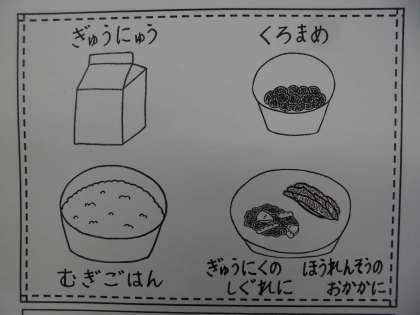 ぎゅうにゅう
くろまめ
むぎごはん
ぎゅうにくの
しぐれに
ほうれんそうの
おかかに